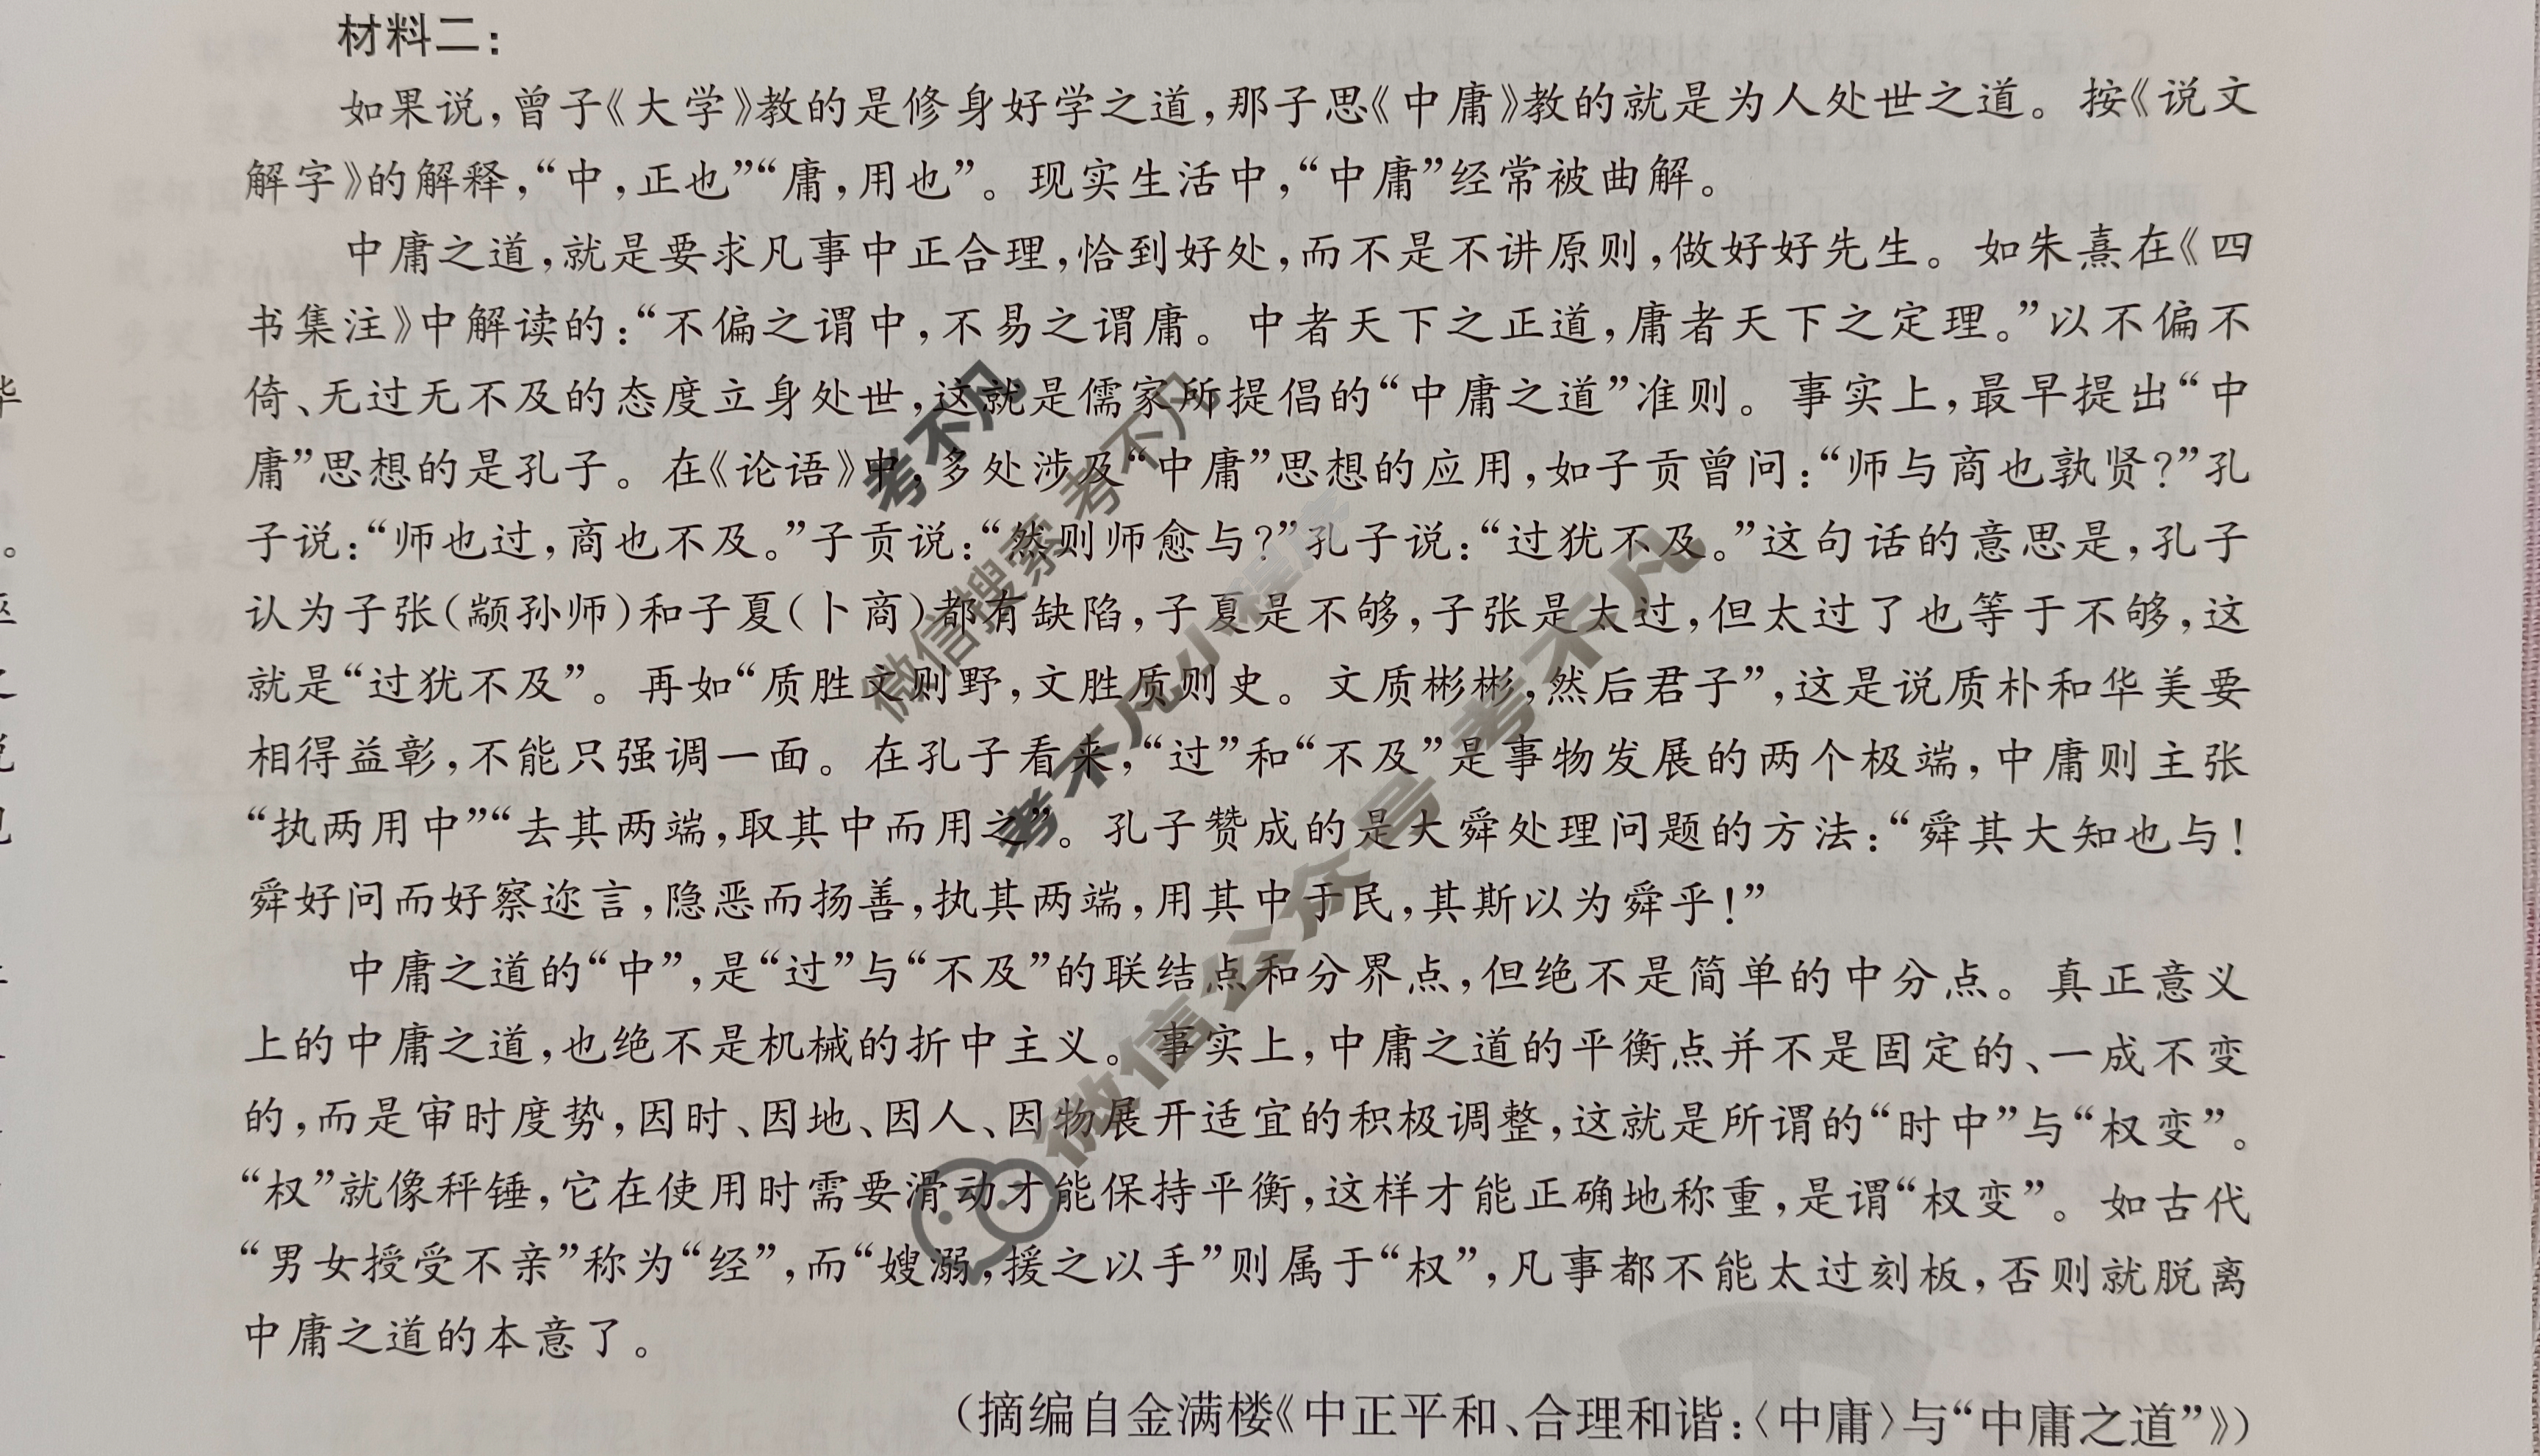 材料二：
如果说，曾子《大学》教的是修身好学之道，那子思《中庸》教的就是为人处世之道。按《说文
解字》的解释，“中，正也”“庸，用也”。现实生活中，“中庸”经常被曲解。
中庸之道，就是要求凡事中正合理，恰到好处，而不是不讲原则，做好好先生。如朱熹在《四
书集注》中解读的：“不偏之谓中，不易之谓庸。中者天下之正道，庸者天下之定理。”以不偏不
倚、无过无不及的态度立身处世，这就是儒家所提倡的“中庸之道”准则。事实上，最早提出“中
庸”思想的是孔子。在《论语》中，多处涉及“中庸”思想的应用，如子贡曾问：“师与商也孰贤？”孔
子说：“师也过，商也不及。”子贡说：“然则师愈与？”孔子说：“过犹不及。”这句话的意思是，孔子
认为子张（颛孙师）和子夏（卜商）都有缺陷，子夏是不够，子张是太过，但太过了也等于不够，这
就是“过犹不及”。再如“质胜文则野，文胜质则史。文质彬彬，然后君子”，这是说质朴和华美要
相得益彰，不能只强调一面。在孔子看来，“过”和“不及”是事物发展的两个极端，中庸则主张
“执两用中”“去其两端，取其中而用之”。孔子赞成的是大舜处理问题的方法：“舜其大知也与！
舜好问而好察迩言，隐恶而扬善，执其两端，用其中于民，其斯以为舜乎！”
中庸之道的“中”，是“过”与“不及”的联结点和分界点，但绝不是简单的中分点。真正意义
上的中庸之道，也绝不是机械的折中主义。事实上，中庸之道的平衡点并不是固定的、一成不变
的，而是审时度势，因时、因地、因人、因物展开适宜的积极调整，这就是所谓的“时中”与“权变”。
“权”就像秤锤，它在使用时需要滑动才能保持平衡，这样才能正确地称重，是谓“权变”。如古代
“男女授受不亲”称为“经”，而“嫂溺，援之以手”则属于“权”，凡事都不能太过刻板，否则就脱离
中庸之道的本意了。
（摘编自金满楼《中正平和、合理和谐：〈中庸〉与“中庸之道”》）
考不凡
微信搜索 考不凡
考不凡小程序
微信公众号 考不凡